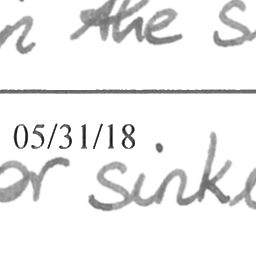 in the s
05/31/18
or sink